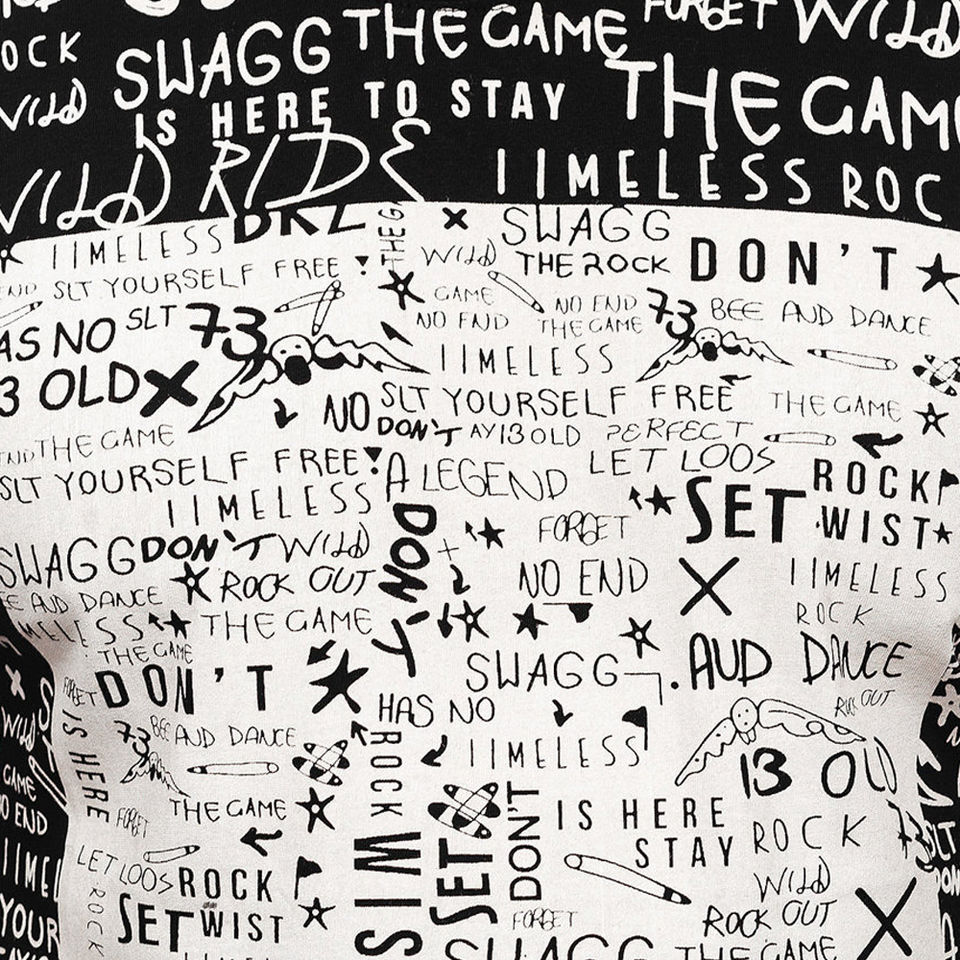 FORGET WILD
OCK SWAGG THE GAME
WILD IS HERE TO STAY THE GAM
WILD RIDE IIMELESS ROC
IIMELESS DRZ THE G SWAGG
WILD THE ROCK DON'T
END SLT YOURSELF FREE
GAME NO END 73 BEE AND DANCE
AS NO SLT 73 NO END THE GAME
3 OLD IIMELESS
NO SLT YOURSELF FREE THE GAME
END THE GAME DON'T AY13 OLD PERFECT
SLT YOURSELF FREE A LEGEND LET LOOS ROCK
IIMELESS DON'T FORGET SET WIST
SWAGG DON'T WILD
ROCK OUT NO END IIMELESS
E AUD DANCE ROCK
MELESS THE GAME
THE GAME SWAGG AUD DANCE
FORGET DON'T HAS NO OUT
IS HERE 73 BEE AND DANCE ROCK IIMELESS 13 OLD
WILD
GAME THE GAME DON'T IS HERE
O END FORGET STAY ROCK
IIMEL LET LOOS ROCK WIS SET WILD
YOUR ROCK SET WIST FORGET ROCK OUT
SWAGG THE GAME